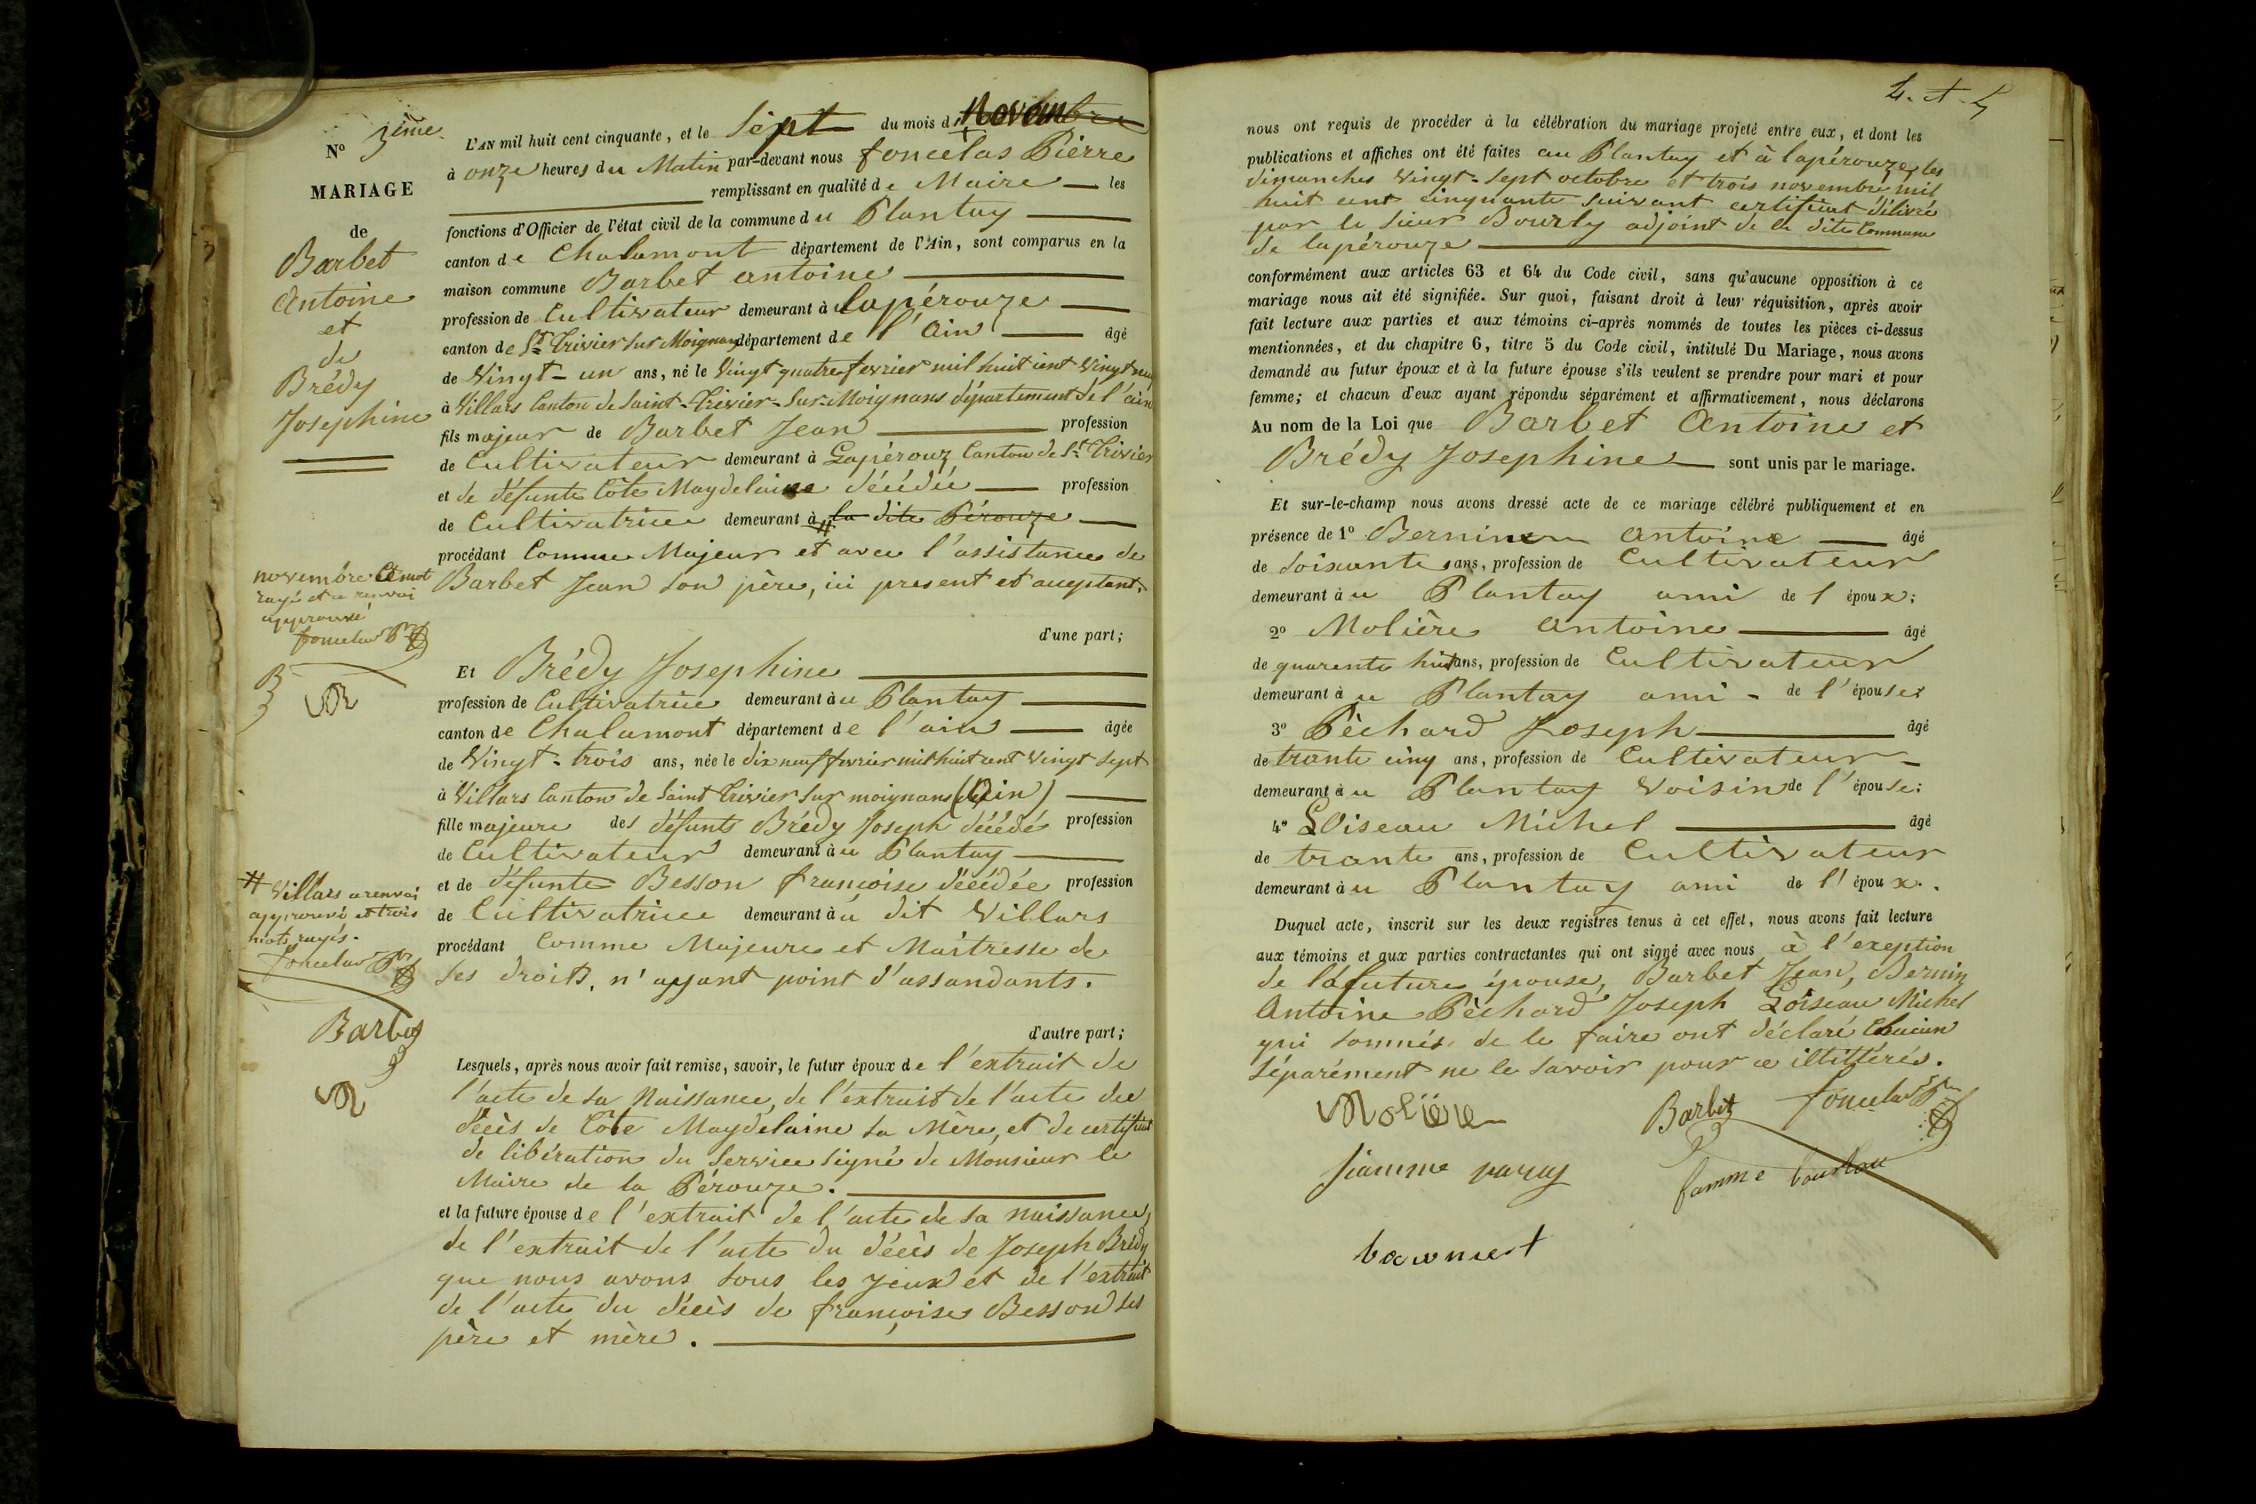 N° 3ème
MARIAGE
de
Barbet
Antoine
et
de
Brédy
Josephine
L'AN mil huit cent cinquante, et le Sept du mois d Novembre
à onze heures du Matin par-devant nous foncelas Pierre
remplissant en qualité de Maire les
fonctions d'Officier de l'état civil de la commune du Plantay
canton de Chalamont département de l'Ain, sont comparus en la
maison commune Barbet antoine
profession de Cultivateur demeurant à Lapérouze
canton de St Trivier sur Moignans département de l'Ain âgé
de Vingt-un ans, né le Vingt quatre fevrier mil huit cent Vingt neuf
à Villars Canton de Saint-Trivier-Sur-Moignans département de l'ain
fils majeur de Barbet Jean profession
de Cultivateur demeurant à Lapérouz Canton de St Trivier
et de défunte Côte Maydelaine décédée profession
de Cultivatrice demeurant à la dite Pérouze
procédant Comme Majeur et avec l'assistance de
Barbet Jean son père, ici present et acceptant.
novembre Ce mot
rayé et ce renvoi
approuvé
foncelas Prre
B
d'une part;
Et Brédy Josephine
profession de Cultivatrice demeurant àu Plantay
canton de Chalamont département de l'ain âgée
de Vingt-trois ans, née le dix neuf fevrier mil huit cent Vingt sept
à Villars Canton de Saint Trivier sur moignans (Ain)
fille majeure des défunts Brédy Joseph décédé profession
de Cultivateur demeurant àu Plantay
et de défunte Besson françoise décédée profession
de Cultivatrice demeurant àu dit Villars
procédant Comme Majeure et Maitresse de
ses droits, n'ayant point d'assandants.
# Villars ce renvoi
approuvé et trois
mots rayés.
foncelas Prre
Barbet
d'autre part;
Lesquels, après nous avoir fait remise, savoir, le futur époux de l'extrait de
l'acte de sa Naissance, de l'extrait de l'acte du
décès de Côte Maydelaine sa Mère, et de certificat
de libération du Service signé de Monsieur le
Maire de la Pérouze.
et la future épouse de l'extrait de l'acte de sa naissance,
de l'extrait de l'acte du décès de Joseph Brédy
que nous avons sous les yeux et de l'extrait
de l'acte du décès de françoise Besson ses
père et mère.
nous ont requis de procéder à la célébration du mariage projeté entre eux, et dont les
publications et affiches ont été faites au Plantay et à lapérouze, les
dimanches vingt-sept octobre et trois novembre mil
huit cent cinquante suivant certificat délivré
par le sieur Bourly adjoint de la dite Commune
de lapérouze
conformément aux articles 63 et 64 du Code civil, sans qu'aucune opposition à ce
mariage nous ait été signifiée. Sur quoi, faisant droit à leur réquisition, après avoir
fait lecture aux parties et aux témoins ci-après nommés de toutes les pièces ci-dessus
mentionnées, et du chapitre 6, titre 5 du Code civil, intitulé Du Mariage, nous avons
demandé au futur époux et à la future épouse s'ils veulent se prendre pour mari et pour
femme; et chacun d'eux ayant répondu séparément et affirmativement, nous déclarons
Au nom de la Loi que Barbet Antoine et
Brédy Josephine sont unis par le mariage.
Et sur-le-champ nous avons dressé acte de ce mariage célébré publiquement et en
présence de 1° Bernin antoine âgé
de soixante ans, profession de Cultivateur
demeurant àu Plantay ami de l'époux;
2° Molière antoine âgé
de quarente huit ans, profession de Cultivateur
demeurant àu Plantay ami de l'épouse;
3° Pèchard Joseph âgé
de trante cinq ans, profession de Cultivateur
demeurant àu Plantay Voisin de l'épouse;
4° LOiseau Michel âgé
de trante ans, profession de Cultivateur
demeurant àu Plantay ami de l'époux.
Duquel acte, inscrit sur les deux registres tenus à cet effet, nous avons fait lecture
aux témoins et aux parties contractantes qui ont signé avec nous à l'exeption
de la future épouse, Barbet Jean, Bernin
Antoine Pèchard Joseph Loiseau Michel
qui sommés de le faire ont déclaré Chacun
séparément ne le savoir pour ce illittérés.
Molière Barbet foncelas Prre
famme